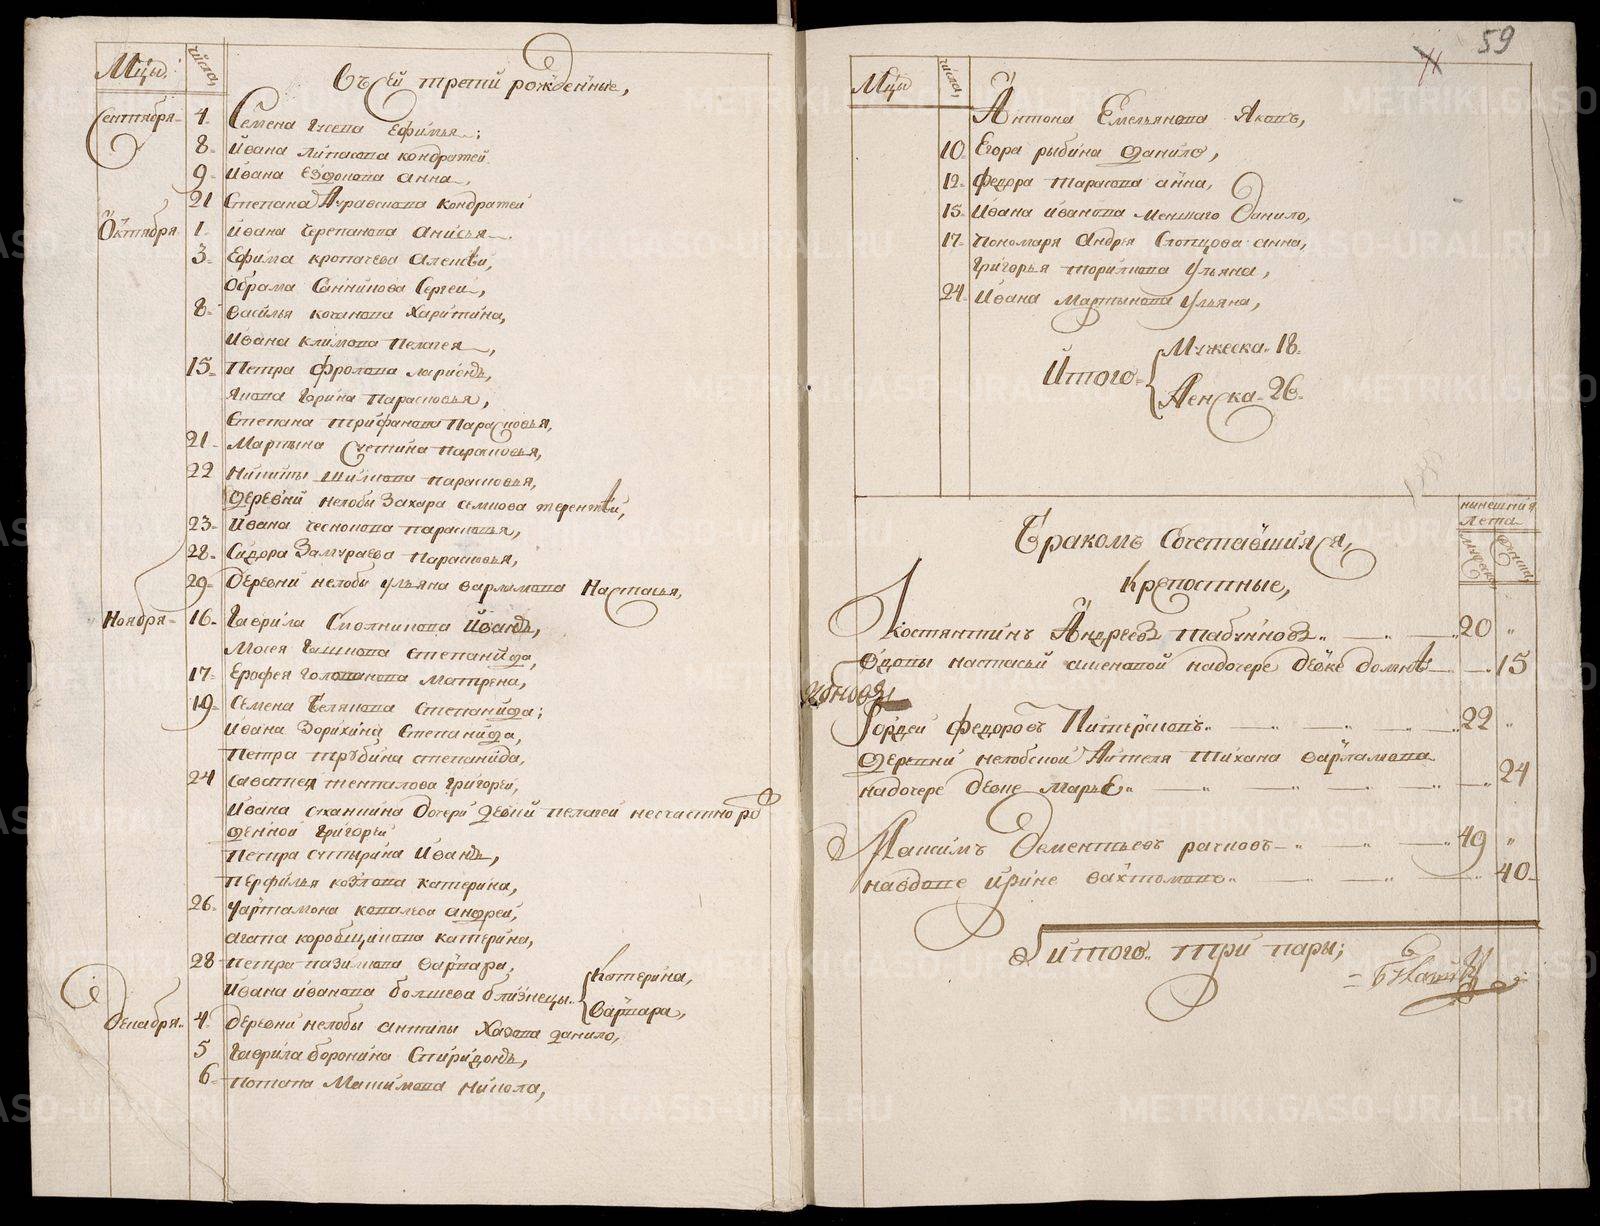 Мцы
числа
Въ сей трети рожденные,
Сентября 4 Семена Гусева Ефимья;
8 Ивана Липатова Кондратей
9 Ивана Анна,
21 Степана Журавлова Кондратей
Октября 1 Ивана Черепанова Анисья
3 Ефима Кропачева Алексей,
Абрама Санникова Сергеи,
8 Василья Кочанова Харитина,
Ивана Климова Пелагея,
15 Петра Фролова Ларионъ,
Якова Горина Парасковья,
Степана Трифанова Парасковья,
21 Мартына Счетина Парасковья,
22 Никиты Шилкова Парасковья,
Деревни Нелобы Захара Терентеи,
23 Ивана Чеснокова Парасковья,
28 Сидора Замураева Парасковья,
29 Деревни Нелобы Ульяна Варламова Настасья,
Ноября 16 Гаврила Смолникова Иванъ,
Мосея Гашкова Степанида,
17 Ерофея Голованова Матрена,
19 Семена Белякова Степанида;
Ивана Зорихина Степанида,
Петра Трубина Степанида,
24 Саватея Григореи,
Ивана дочери девки Пелагеи несчастно ро
жденной Григореи
Петра Иванъ,
Перфилья Козлова Катерина,
26 Артамона Ковалева Андреи,
Агапа Коробщикова Катерина,
28 Петра Назимова Варвара,
Ивана Иванова Болшева близнецы Катерина,
Варвара,
Декабря 4 Деревни Нелобы Антипы Хазова Данило,
5 Гаврила Боронина Спиридонъ,
6 Потапа Макимова Никола,
59
Мцы
числа
Антона Емельянова Яковъ,
10 Егора Рыбина Данило,
12 Федора Тарасова Анна,
15 Ивана Иванова меншаго Данило,
17 Пономаря Андрея Слопцова Анна,
Григорья Торилкова Ульяна,
24 Ивана Мартынова Ульяна,
Итого Мужеска 18
Женска 26
нынешния
лета
Бракомъ Сочетавшияся,
Крепостные,
Костянтинъ Андреевъ Табачниковъ 20 "
вдовы Настасьи Аменовой на дочере девке 15
Гордей Федоровъ 22 "
деревни Нелобской жителя Тихана Варламова
на дочере девке Марье 24
Максимъ Дементьевъ Рачковъ 49 "
на вдове Ирине 40
Итого три пары;